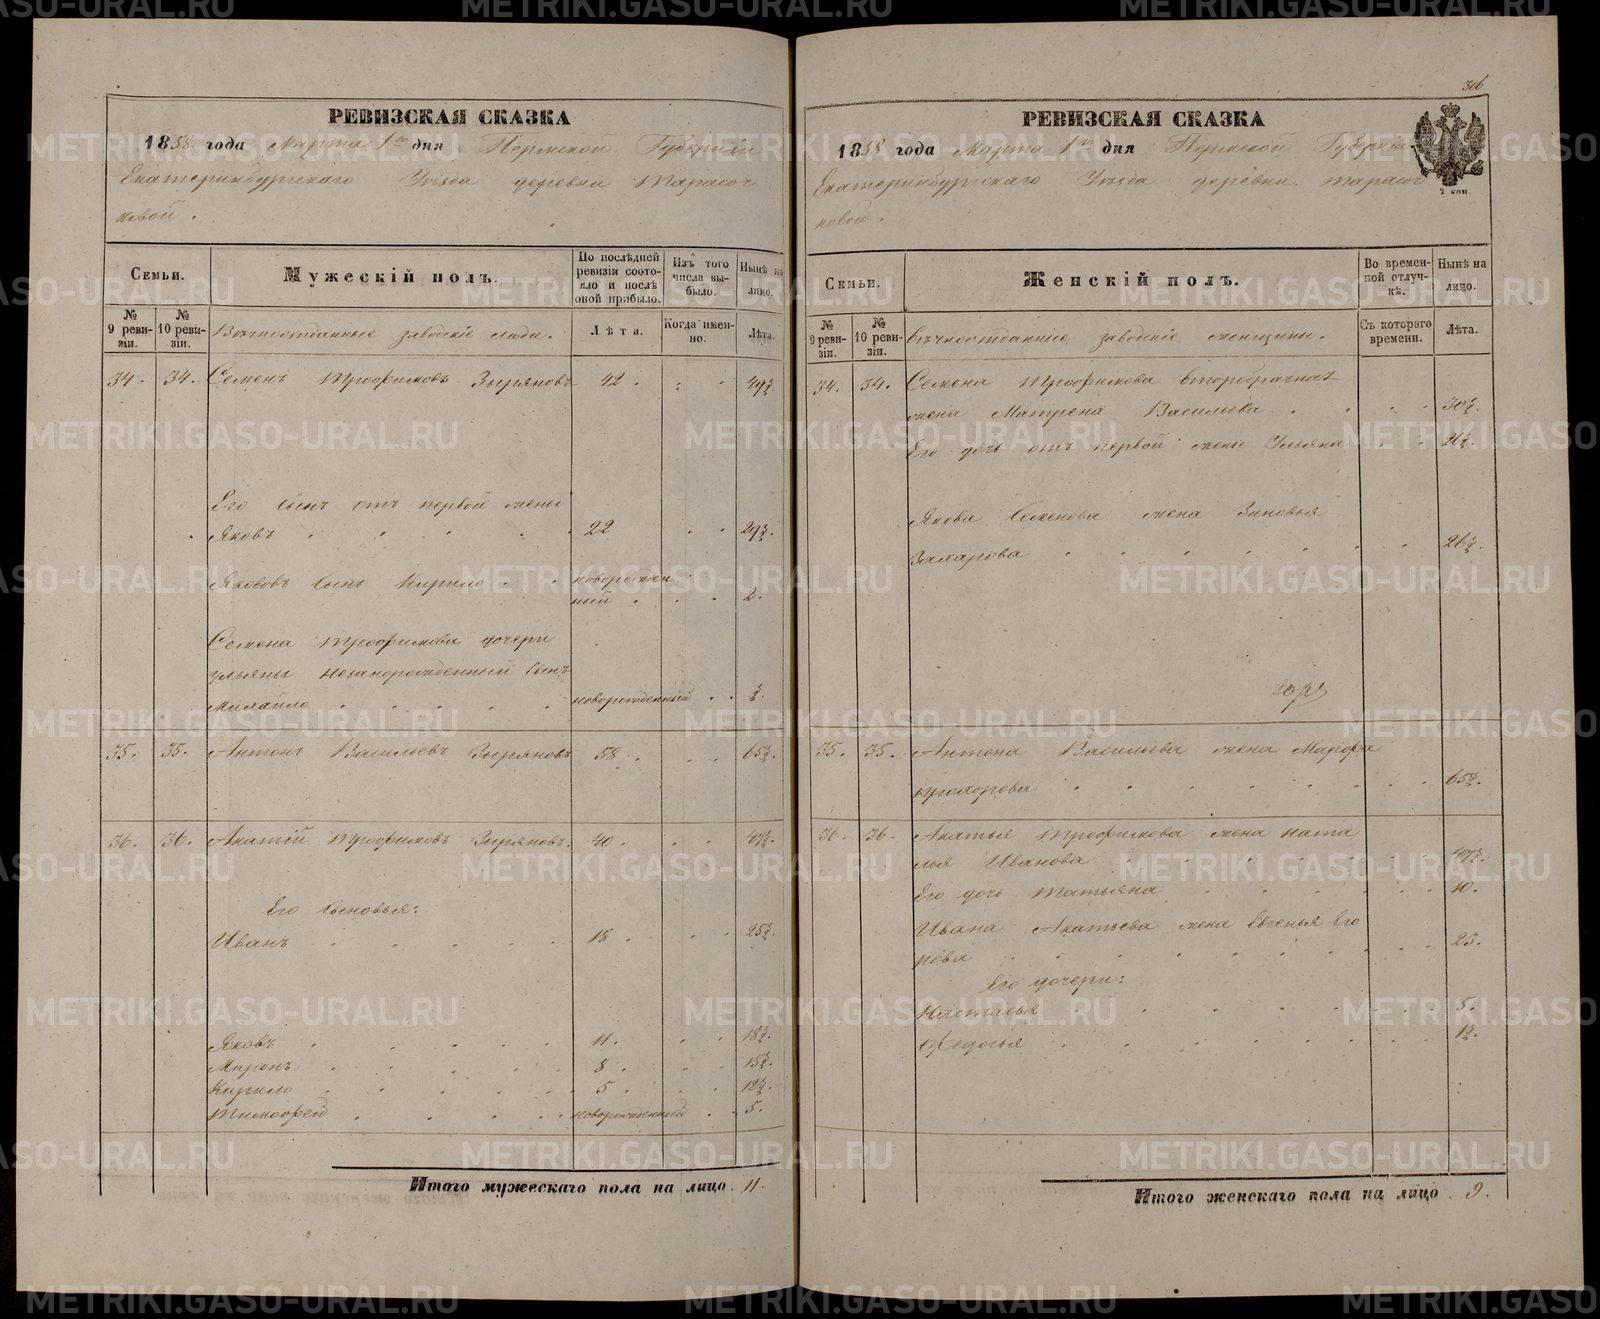 306
РЕВИЗСКАЯ СКАЗКА
1858 года Марта 1го дня Пермской Губерніи
Екатеринбургскаго Уѣзда деревни Тарасов
новой.
Семьи.
Мужескій полъ.
По послѣдней ревизіи состояло и послѣ оной прибыло.
Изъ того числа выбыло.
Нынѣ на лицо.
№ 9 ревизіи.
№ 10 ревизіи.
Вѣчноотданные заводскіе люди.
Лѣта.
Когда именно.
Лѣта.
34. 34. Семенъ Трофимовъ Зыряновъ 42. 49½
Его сынъ отъ первой жены
Яковъ 22 29½.
Якововъ сынъ Кирило новорожден
ный 2.
Семена Трофимова дочери
Ульяны незаконорожденный сынъ
Михайло новорожденный ½.
35. 35. Антонъ Васильевъ Зыряновъ 58. 65½.
36. 36. Акатій Трофимовъ Зыряновъ. 40. 47½.
Его сыновья:
Иванъ 18. 25½.
Яковъ 11. 18½.
Миронъ 8. 15½.
Кирило 5. 12½.
Тимофей новорожденный 5.
Итого мужескаго пола на лицо 11.
РЕВИЗСКАЯ СКАЗКА
1858 года Марта 1го дня Пермской Губерніи
Екатеринбургскаго Уѣзда деревни Тарасов
новой.
2 коп
Семьи.
Женскій полъ.
Во временной отлучкѣ.
Нынѣ на лицо.
№ 9 ревизіи.
№ 10 ревизіи.
Вѣчноотданные заводскіе женщины.
Съ котораго времени.
Лѣта.
34. 34. Семена Трофимова второбрачная
жена Матрена Васильева 30½.
Его дочь отъ первой жены Ульяна 21½.
Якова Семенова жена Зиновья
Захарова 26½.
35. 35. Антона Васильева жена Марфа
Прохорова 65½.
36. 36. Акатья Трофимова жена Ната
лья Иванова 47½.
Его дочь Татьяна 10.
Ивана Акатьева жена Евгенья Его
рова 25.
Его дочери:
Настасья 5.
Федосья 1½.
Итого женскаго пола на лицо 9.
METRIKI.GASO-URAL.RU